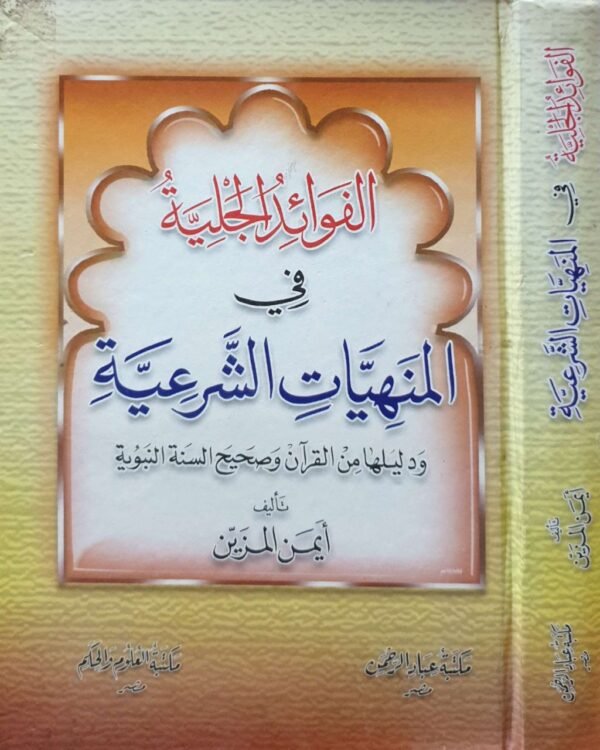 الفَوَائِدُ الجَلِيَّةُ
فِي
المَنهِيَّاتِ الشَّرعِيَّةِ
وَدليلهَا مِنَ القرآن وَصَحيح السنة النبوية
تأليف
أيمَن المزيّن
مكتبة عباد الرحمن
مصر
مكتبة العلوم والحكم
مصر
الفَوَائِدُ الجَلِيَّةُ
في
المَنهِيَّاتِ الشَّرعِيَّةِ
تأليف
أيمَن المزيّن
مكتبة عباد الرحمن
مصر